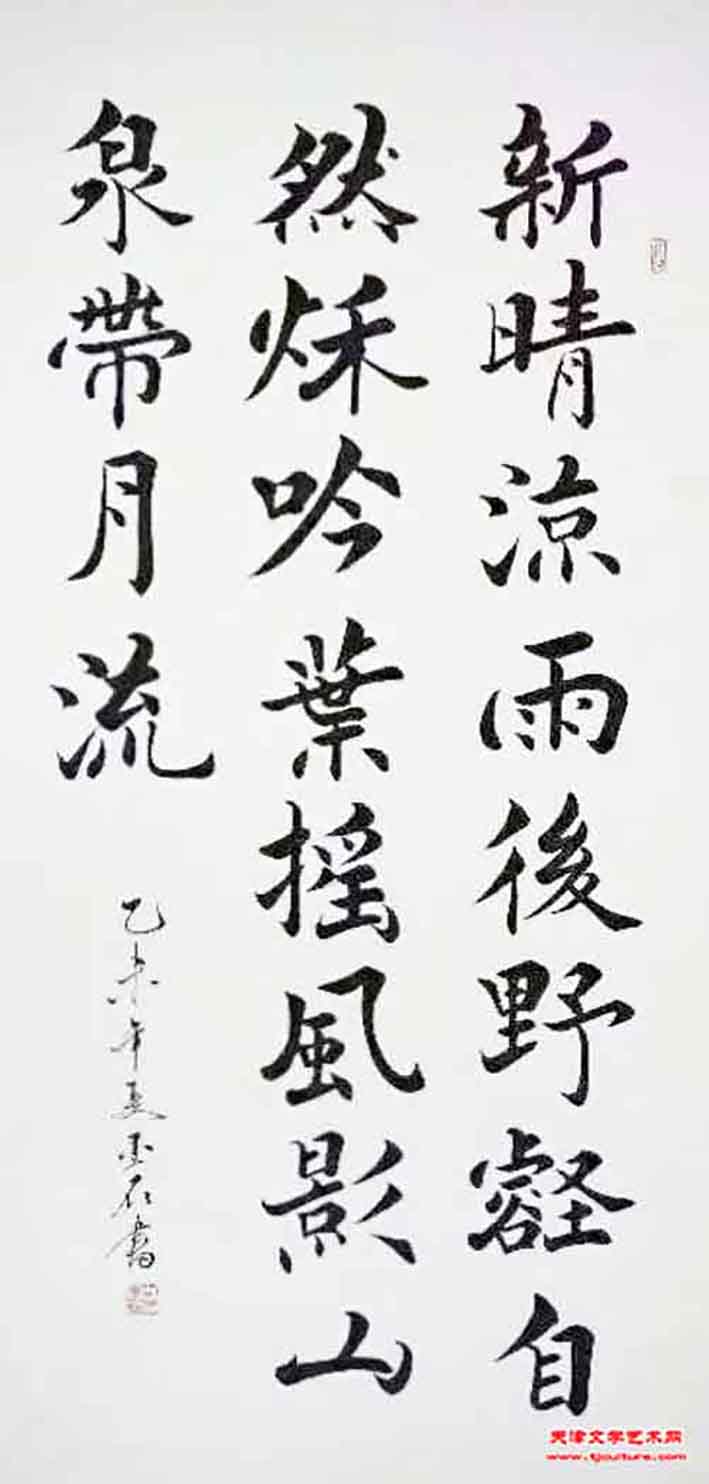 新晴涼雨後野壑自
然烌吟葉摇風影山
泉帶月流
乙未年夏墨石書
天津文学艺术网
www.tjculture.com